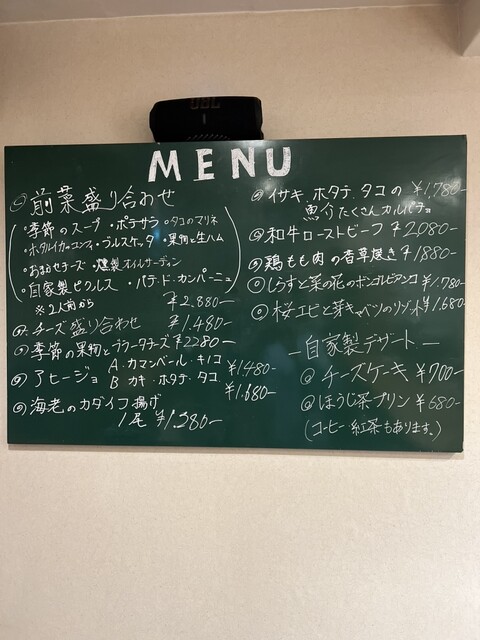 JBL
MENU
前菜盛り合わせ
・季節のスープ ・ポテサラ ・タコのマリネ
・ホタルイカのコンフィ ・ブルスケッタ ・果物と生ハム
・おまかせチーズ ・燻製オイルサーディン
・自家製ピクルス ・パテ・ド・カンパーニュ
※2人前から ¥2,880-
チーズ盛り合わせ ¥1,480-
季節の果物とブラータチーズ ¥2280-
アヒージョ A.カマンベール・キノコ ¥1480-
B カキ・ホタテ・タコ ¥1,680-
海老のカダイフ揚げ
1尾 ¥1,280-
イサキ、ホタテ、タコの ¥1,780-
魚介たくさんカルパチョ
和牛ローストビーフ ¥2,080-
鶏もも肉の香草焼き ¥1880-
しらすと菜の花のボンゴレビアンコ ¥1,780-
桜エビと芽キャベツのリゾット ¥1,680-
―自家製デザート―
チーズケーキ ¥700-
ほうじ茶プリン ¥680-
(コーヒー・紅茶もあります。)